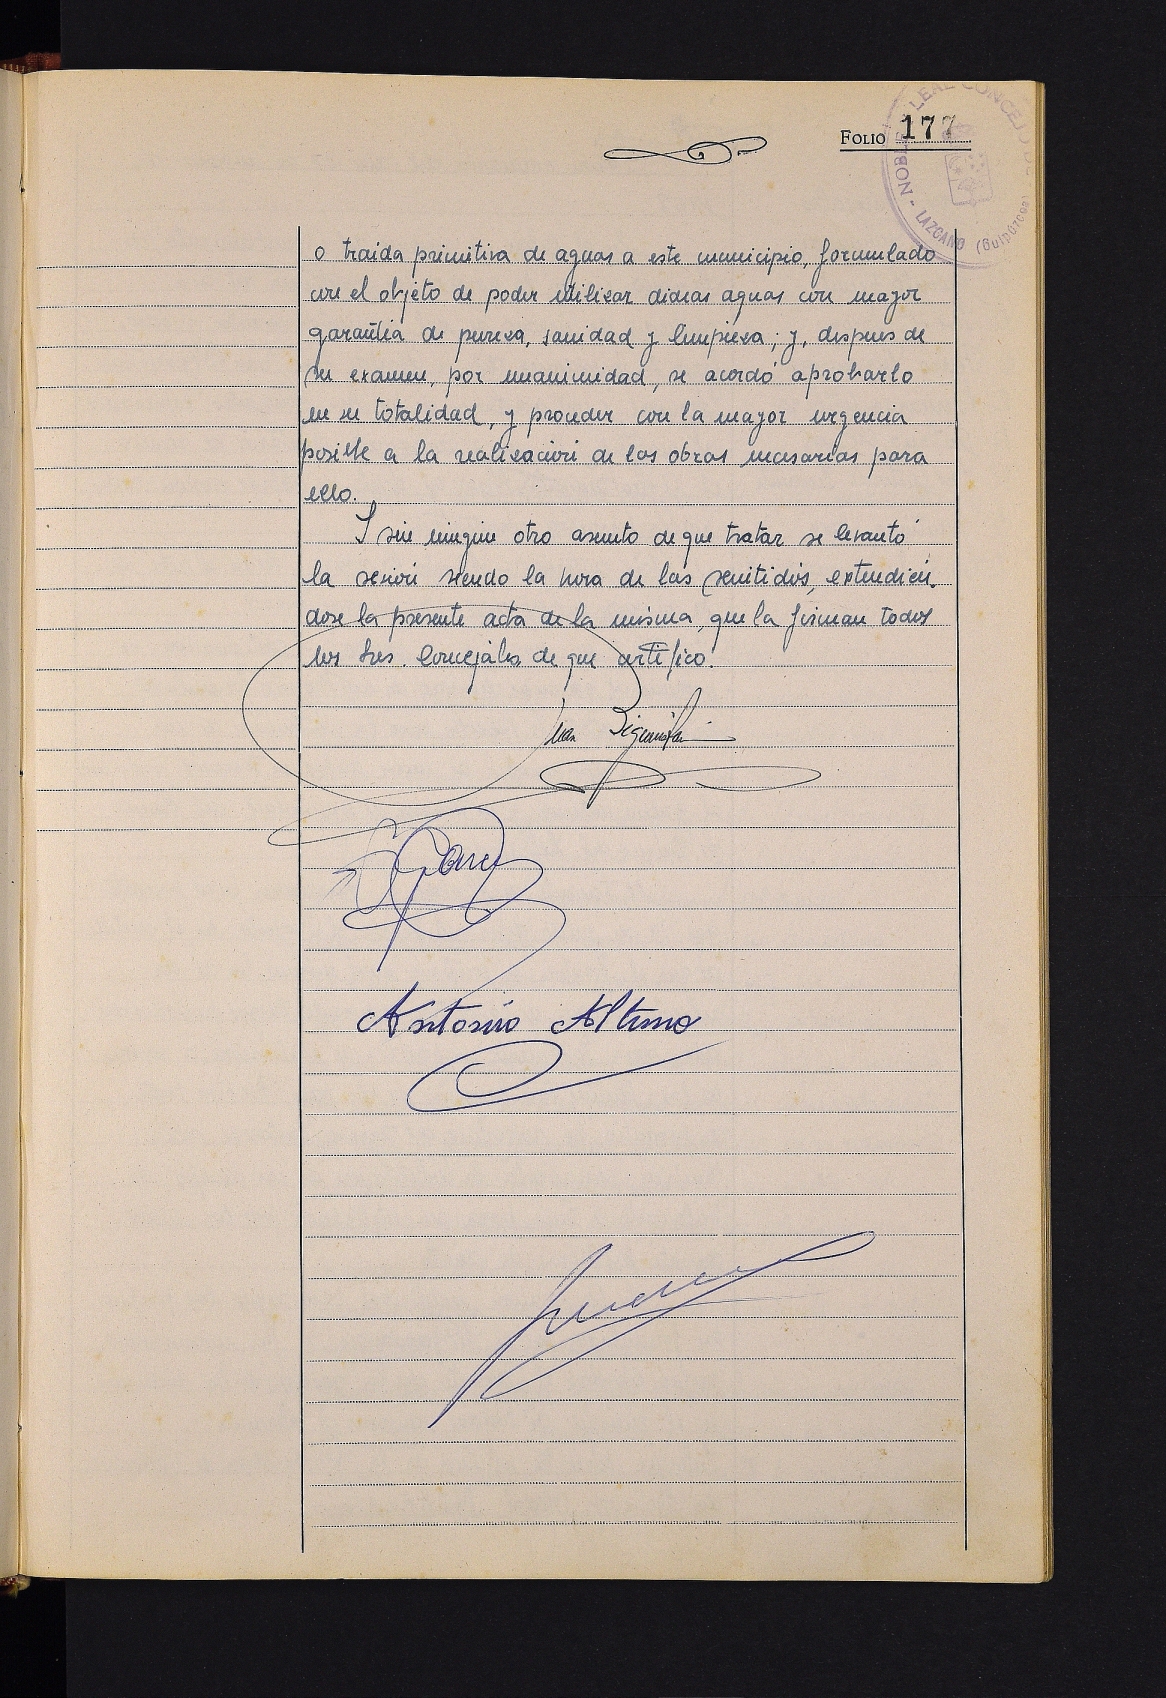 FOLIO 177
NOBLE LEAL CONCEJO DE
- LAZCANO (Guipúzcoa)
o traída primitiva de aguas a este municipio, formulado
con el objeto de poder utilizar dichas aguas con mayor
garantía de pureza, sanidad y limpieza; y, despues de
su examen, por unanimidad, se acordó aprobarlo
en su totalidad, y proceder con la mayor urgencia
posible a la realización de las obras necesarias para
ello.
Y sin ningún otro asunto de que tratar se levantó
la sesión siendo la hora de las veintidós, extendién-
dose la presente acta de la misma, que la firman todos
los Sres. Concejales de que certifico.
Juan
Antonio Altuna